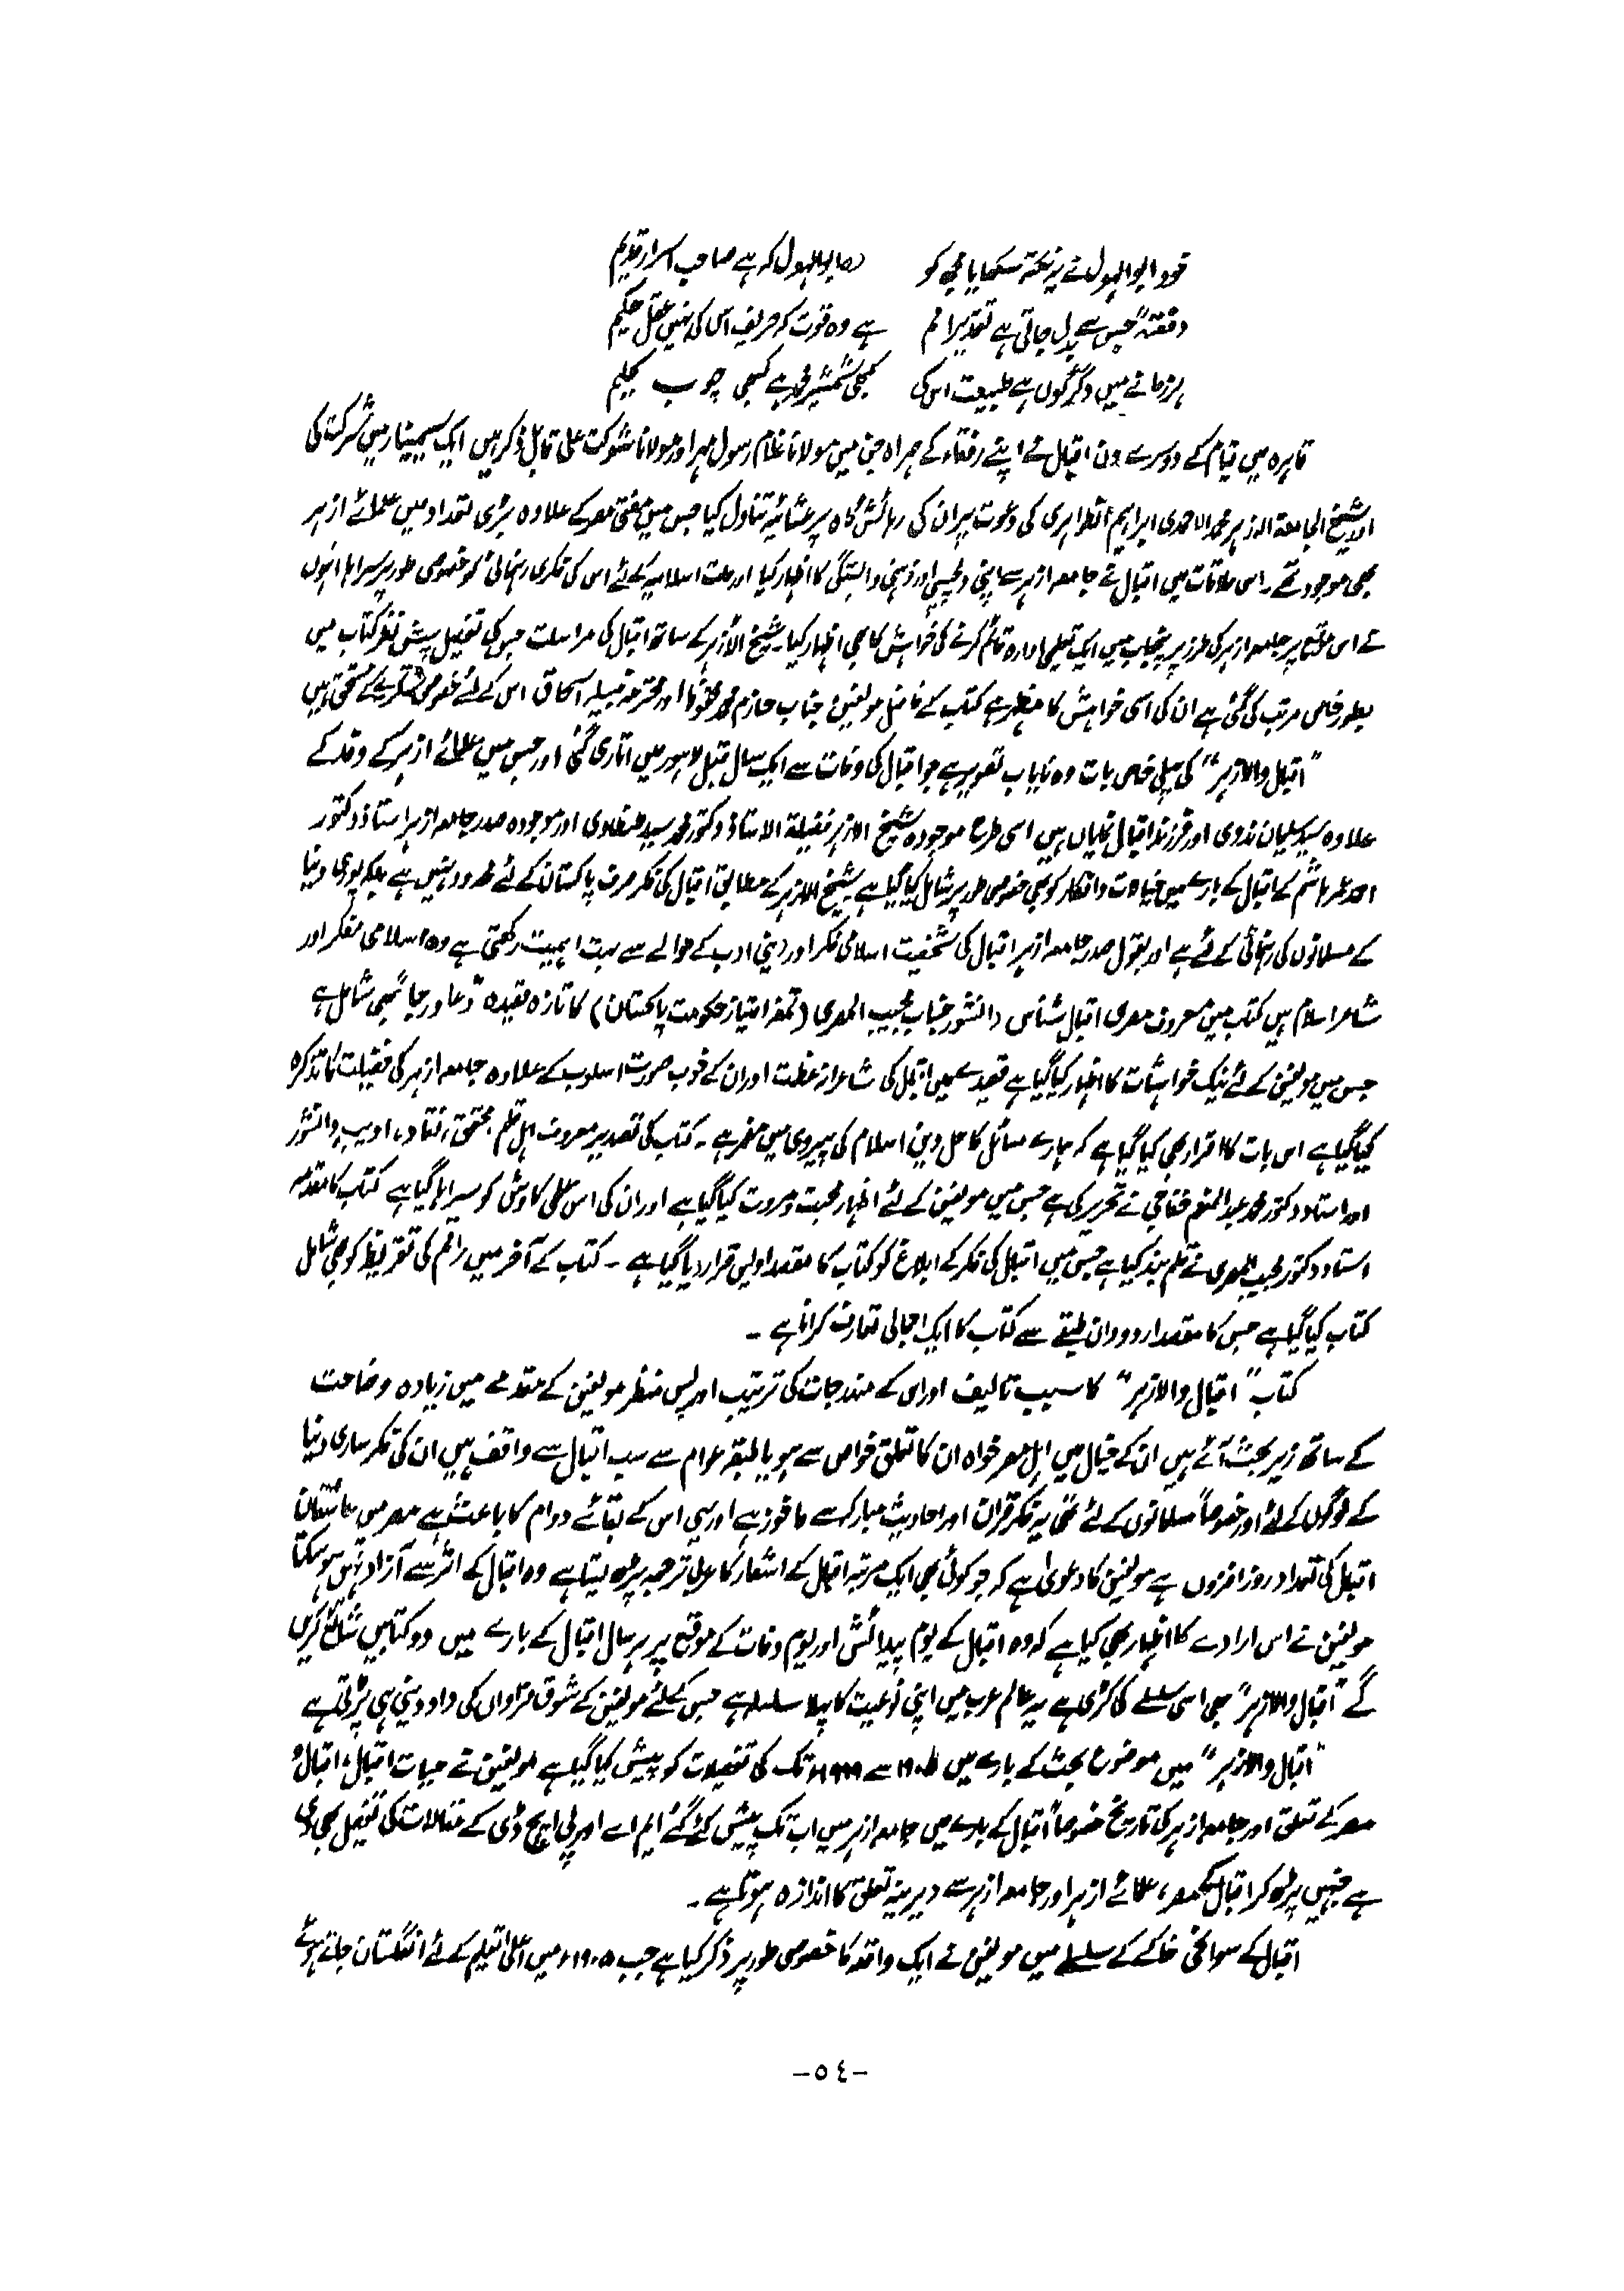 خود ابوالہول نے یہ نکتہ سکھایا مجھ کو وہ ابوالہول کہ ہے صاحب اسرار قدیم
دفعتہً جس سے بدل جاتی ہے تقدیر امم ہے وہ قوت کہ حریف اس کی نہیں عقل حکیم
ہر زمانے میں دگرگوں ہے طبیعت اس کی کبھی شمشیر محمد ہے کبھی چوب کلیم
قاہرہ میں قیام کے دوسرے دن اقبال نے اپنے رفقاء کے ہمراہ جن میں مولانا غلام رسول مہر اور مولانا شوکت علی قابل ذکر ہیں ایک سیمینار میں شرکت کی
اور شیخ الجامعۃ الازہر محمد الاحمدی ابراہیم الظواہری کی دعوت پر ان کی رہائش گاہ پر عشائیہ تناول کیا جس میں مفتی مصر کے علاوہ بڑی تعداد میں علمائے ازہر
بھی موجود تھے۔ اس ملاقات میں اقبال نے جامعہ ازہر سے اپنی دلچسپی اور ذہنی وابستگی کا اظہار کیا اور ملت اسلامیہ کے لئے اس کی فکری رہنمائی کو خصوصی طور پر سراہا انہوں
نے اس موقع پر جامعہ ازہر کی طرز پر پنجاب میں ایک تعلیمی ادارہ قائم کرنے کی خواہش کا بھی اظہار کیا۔ شیخ الازہر کے ساتھ اقبال کی مراسلت جس کی تفصیل پیش نظر کتاب میں
بطور خاص مرتب کی گئی ہے ان کی اسی خواہش کا مظہر ہے کتاب کے فاضل مولفین جناب حازم محمد محفوظ اور محترمہ نبیلہ اسحاق اس کے لئے خصوصی شکریے کے مستحق ہیں
"اقبال والازہر" کی پہلی خاص بات وہ نایاب تصویر ہے جو اقبال کی وفات سے ایک سال قبل لاہور میں اتاری گئی اور جس میں علمائے ازہر کے وفد کے
علاوہ سید سلیمان ندوی اور فرزند اقبال نمایاں ہیں اسی طرح موجودہ شیخ الازہر فضیلۃ الاستاذ دکتور محمد سید طنطاوی اور موجودہ صدر جامعہ ازہر استاذ دکتور
احمد عمر ہاشم کے اقبال کے بارے میں خیالات و افکار کو بھی خصوصی طور پر شامل کیا گیا ہے شیخ الازہر کے مطابق اقبال کی فکر صرف پاکستان کے لئے محدود نہیں ہے بلکہ پوری دنیا
کے مسلمانوں کی رہنمائی کے لئے ہے اور بقول صدر جامعہ ازہر اقبال کی شخصیت اسلامی فکر اور دینی ادب کے حوالے سے بہت اہمیت رکھتی ہے وہ اسلامی مفکر اور
شاعر اسلام ہیں کتاب میں معروف مصری اقبال شناس دانشور جناب مجیب المصری (تمغہ امتیاز حکومت پاکستان) کا تازہ قصیدہ "دعا و رجا" بھی شامل ہے
جس میں مولفین کے لئے نیک خواہشات کا اظہار کیا گیا ہے قصیدے میں اقبال کی شاعرانہ عظمت اور ان کے خوب صورت اسلوب کے علاوہ جامعہ ازہر کی فضیلت کا تذکرہ
کیا گیا ہے اس بات کا اقرار بھی کیا گیا ہے کہ ہمارے مسائل کا حل دین اسلام کی پیروی میں مضمر ہے۔ کتاب کی تصدیر معروف اہل قلم، محقق، نقاد، ادیب، دانشور
اور استاد دکتور محمد عبدالمنعم خفاجی نے تحریر کی ہے جس میں مولفین کے لئے اظہار محبت و مروت کیا گیا ہے اور ان کی اس علمی کاوش کو سراہا گیا ہے کتاب کا مقدمہ
استاد دکتور مجیب المصری نے قلم بند کیا ہے جس میں اقبال کی فکر کے ابلاغ کو کتاب کا مقصد اولیں قرار دیا گیا ہے۔ کتاب کے آخر میں راقم کی تقریظ کو بھی شامل
کتاب کیا گیا ہے جس کا مقصد اردو دان طبقے سے کتاب کا ایک اجمالی تعارف کرانا ہے۔
کتاب "اقبال والازہر" کا سبب تالیف اور اس کے مندرجات کی ترتیب اور پس منظر مولفین کے مقدمے میں زیادہ وضاحت
کے ساتھ زیر بحث آئے ہیں ان کے خیال میں اہل مصر خواہ ان کا تعلق خواص سے ہو یا طبقہ عوام سے سب اقبال سے واقف ہیں ان کی فکر ساری دنیا
کے لوگوں کے لئے اور خصوصاً مسلمانوں کے لئے تھی یہ فکر قرآن اور احادیث مبارکہ سے ماخوذ ہے اور یہی اس کے بقائے دوام کا باعث ہے مصر میں عاشقان
اقبال کی تعداد روز افزوں ہے مولفین کا دعویٰ ہے کہ جو کوئی بھی ایک مرتبہ اقبال کے اشعار کا عربی ترجمہ پڑھ لیتا ہے وہ اقبال کے اثر سے آزاد نہیں ہو سکتا
مولفین نے اس ارادے کا اظہار بھی کیا ہے کہ وہ اقبال کے یوم پیدائش اور یوم وفات کے موقع پر ہر سال اقبال کے بارے میں دو کتابیں شائع کریں
گے "اقبال والازہر" بھی اسی سلسلے کی کڑی ہے یہ عالم عرب میں اپنی نوعیت کا پہلا سلسلہ ہے جس کے لئے مولفین کے شوق فراواں کی داد دینی ہی پڑتی ہے
"اقبال والازہر" میں موضوع بحث کے بارے میں سے تک کی تفصیلات کو پیش کیا گیا ہے مولفین نے حیات اقبال، اقبال و
مصر کے تعلق اور جامعہ ازہر کی تاریخ خصوصاً اقبال کے بارے میں جامعہ ازہر میں اب تک پیش کئے گئے ایم اے اور پی ایچ ڈی کے مقالات کی تفصیل بھی دی
ہے جنہیں پڑھ کر اقبال کے مصر، علمائے ازہر اور جامعہ ازہر سے دیرینہ تعلق کا اندازہ ہوتا ہے۔
اقبال کے سوانحی خاکے کے سلسلے میں مولفین نے ایک واقعہ کا خصوصی طور پر ذکر کیا ہے جب ۱۹۰۵ء میں اعلیٰ تعلیم کے لئے انگلستان جاتے ہوئے
-٥٤-